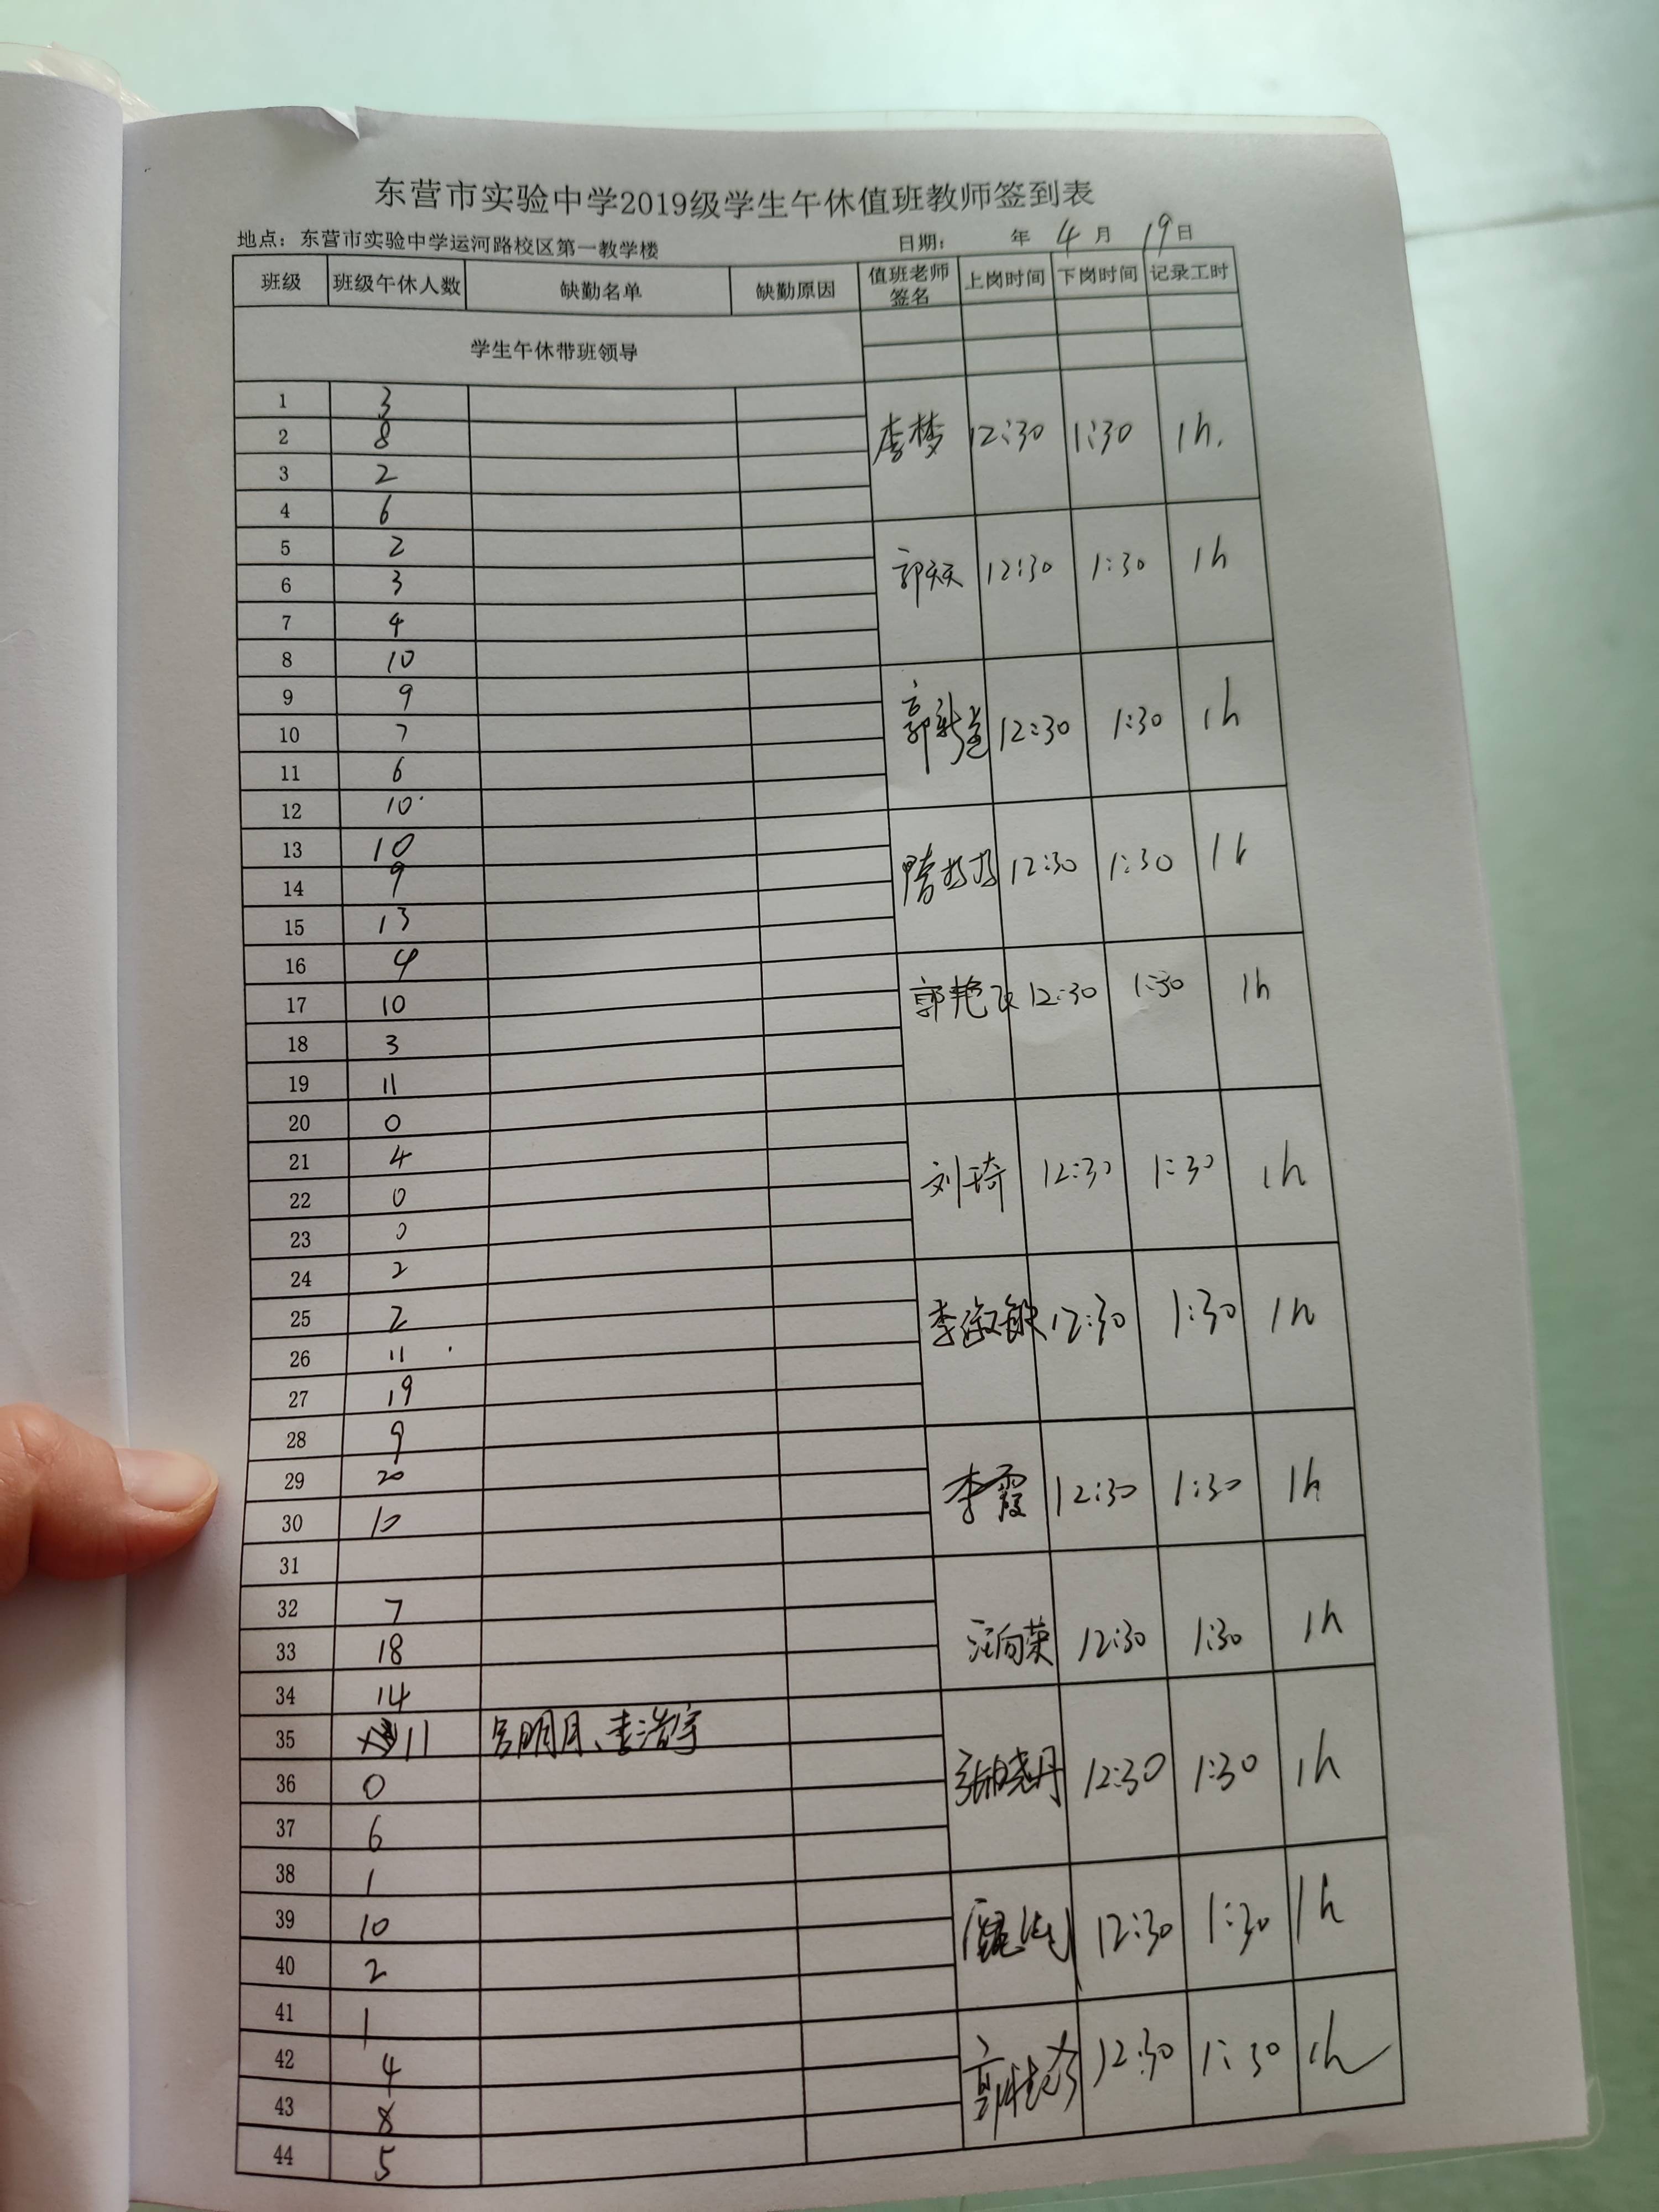 东营市实验中学2019级学生午休值班教师签到表
地点：东营市实验中学运河路校区第一教学楼 日期： 年 4 月 19 日
班级 班级午休人数 缺勤名单 缺勤原因 值班老师签名 上岗时间 下岗时间 记录工时
学生午休带班领导
1 3
2 8 李梦 12:30 1:30 1h.
3 2
4 6
5 2
6 3 郭天天 12:30 1:30 1h
7 4
8 10
9 9
10 7 郭新 12:30 1:30 1h
11 6
12 10
13 10
14 9 12:30 1:30 1h
15 13
16 4
17 10 郭艳飞 12:30 1:30 1h
18 3
19 11
20 0
21 4
22 0 刘琦 12:30 1:30 1h
23 0
24 2
25 2 李淑敏 12:30 1:30 1h
26 11
27 19
28 9
29 20 李霞 12:30 1:30 1h
30 10
31
32 7
33 18 汪向荣 12:30 1:30 1h
34 14
35 11 吕明月、李浩宇
36 0 张晓丹 12:30 1:30 1h
37 6
38 1
39 10 12:30 1:30 1h
40 2
41 1
42 4 12:30 1:30 1h
43 8
44 5